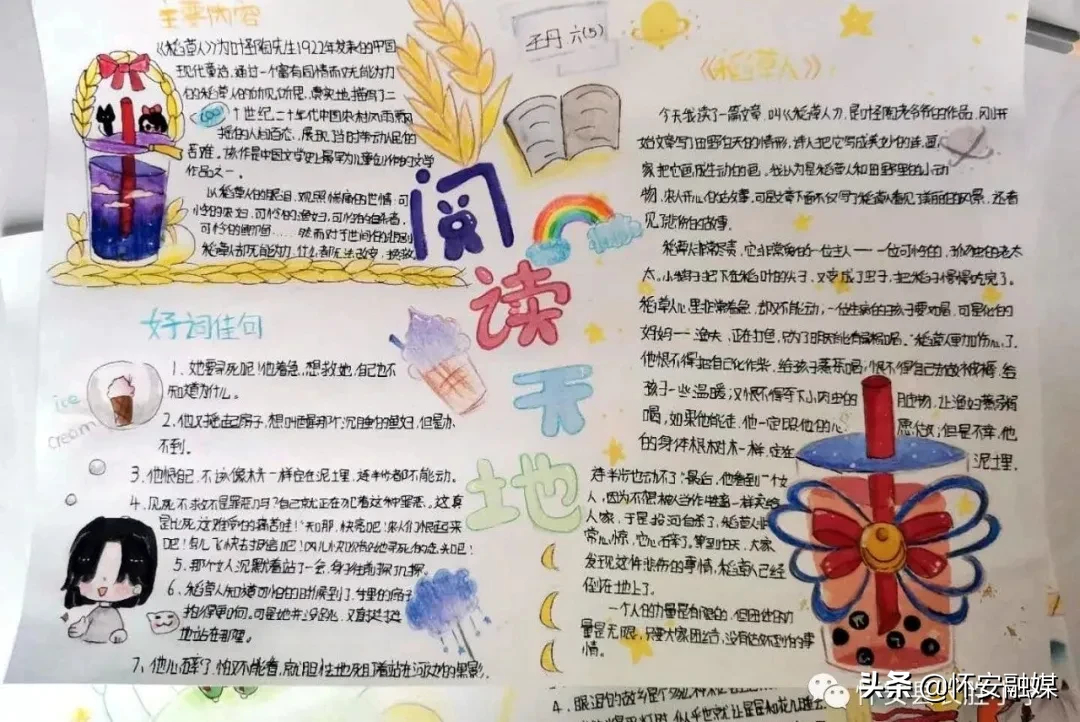 主要内容
《稻草人》为叶圣陶先生1922年发表的中国
现代童话。通过一个富有同情而又无能为力
的稻草人的所见所思,真实地描写了二
十世纪二十年代中国农村风雨飘
摇的人间百态,展现了当时劳动人民的
苦难。该作是中国文学史上最早为儿童创作的文学
作品之一。
以稻草人的眼泪,观照悲痛的世情,可
怜的农妇,可怜的渔妇,可怜的自杀者,
可怜的鲫鱼……然而对于世间的悲剧
稻草人却无能为力,什么都无法改变
好词佳句
ice
cream
1、她要寻死呢!他着急,想救她,自己也不
知道为什么。
2、他又摇起扇子,想叫醒那个沉睡的渔妇,但是办
不到。
3、他恨自己,不该像树木一样定在泥土里,连半步都不能动。
4、见死不救不是罪恶吗?自己就正在犯着这种罪恶。这真
是比死这难受的痛苦哇!天哪,快亮吧!农人们快起来
吧!鸟儿飞快去报信吧!风儿快吹散她寻死的念头吧!
5、那个女人沉默着站了一会,身子往前探了几探。
6、稻草人知道可怕的时候到了,手里的扇子
拍得更响。可是她并没跳,又直挺挺
地站在那里。
7、他心碎了,怕又不能看,就胆怯地死盯着站在河边的黑影。
王丹 六(5)
阅
读
天
地
《稻草人》
今天我读了一篇文章,叫《稻草人》,是叶圣陶老爷爷的作品,刚开
始文章写了田野白天的情形,诗人把它写成美妙的诗,画
家把它画成生动的画。我以为是稻草人和田野里的小动
物,农人开心的故事,可是文章下面不仅写了稻草人看见了美丽的风景,还看
见了悲伤的故事。
稻草人非常尽责,它非常爱的一位主人——一位可怜的,孤独的老太
太。小蛾子把卵下在稻叶的尖子,又变成了虫子,把稻子慢慢吃完了。
稻草人心里非常着急,却又不能动,一位生病的孩子要喝水,可是他的
妈妈——渔夫,正在打鱼,只为了明天能有粥喝。稻草人更加伤心了,
他恨不得把自己化作柴,给孩子煮茶喝;恨不得自己当做被褥,给
孩子一些温暖;又恨不得夺下小肉虫的
喝,如果他能走,他一定照他的心愿做;但是不幸,他
的身体跟树木一样,定在泥土里,
连半步也动不了。最后,他看到了一个女
人,因为不愿被人当作牲畜一样卖给
人家,于是投河自杀了,稻草人非
常心惊,它心碎了,等到白天,大家
发现这件悲伤的事情,稻草人已经
倒在地上了。
一个人的力量是有限的,但团结的力
量是无限,只要大家团结,没有达不到的事
情。
头条@怀安融媒